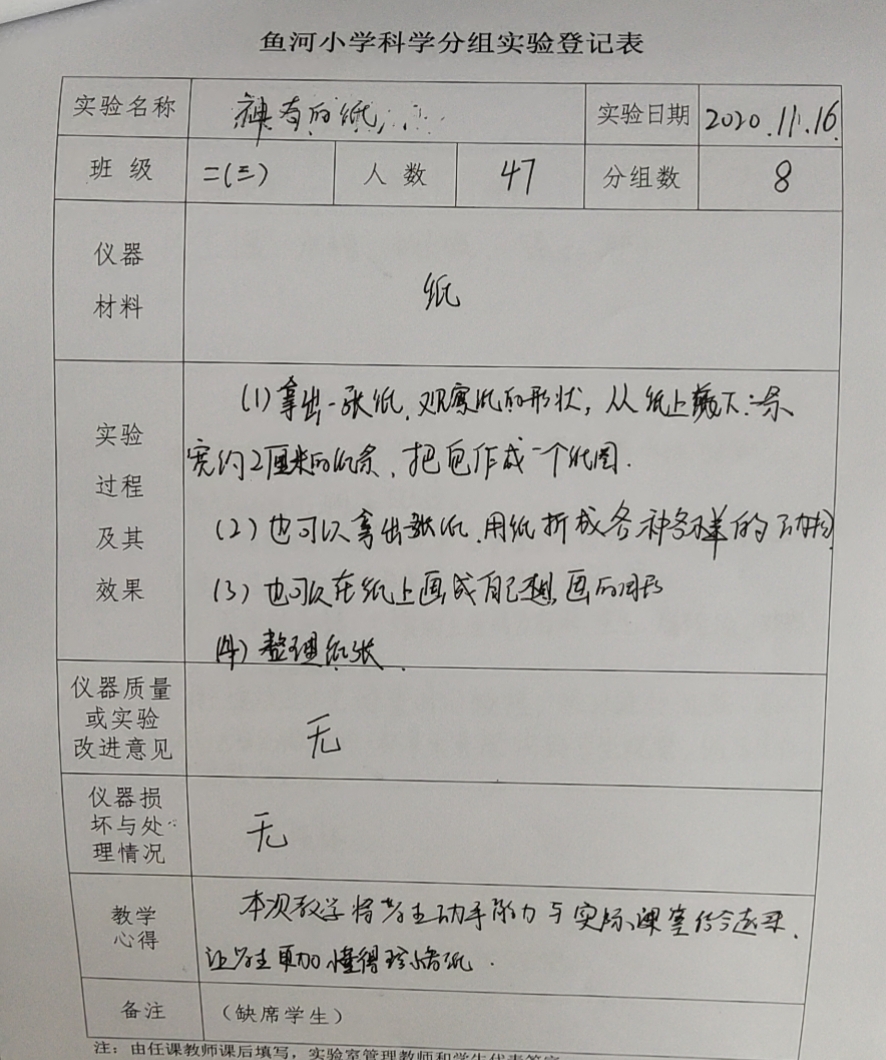 鱼河小学科学分组实验登记表
实验名称 神奇的纸 实验日期 2020.11.16
班级 二(三) 人数 47 分组数 8
仪器
材料
纸
实验
过程
及其
效果
(1)拿出一张纸,观察纸的形状,从纸上裁下一条
宽约2厘米的纸条,把它作成一个纸圈.
(2)也可以拿出张纸,用纸折成各种各样的动物
(3)也可以在纸上画成自己想画的图形
(4)整理纸张.
仪器质量
或实验
改进意见
无
仪器损
坏与处
理情况
无
教学
心得
本次教学将学生动手能力与实际课堂结合起来.
让学生更加懂得珍惜纸.
备注 (缺席学生)
注:由任课教师课后填写,实验室管理教师和学生代表签字